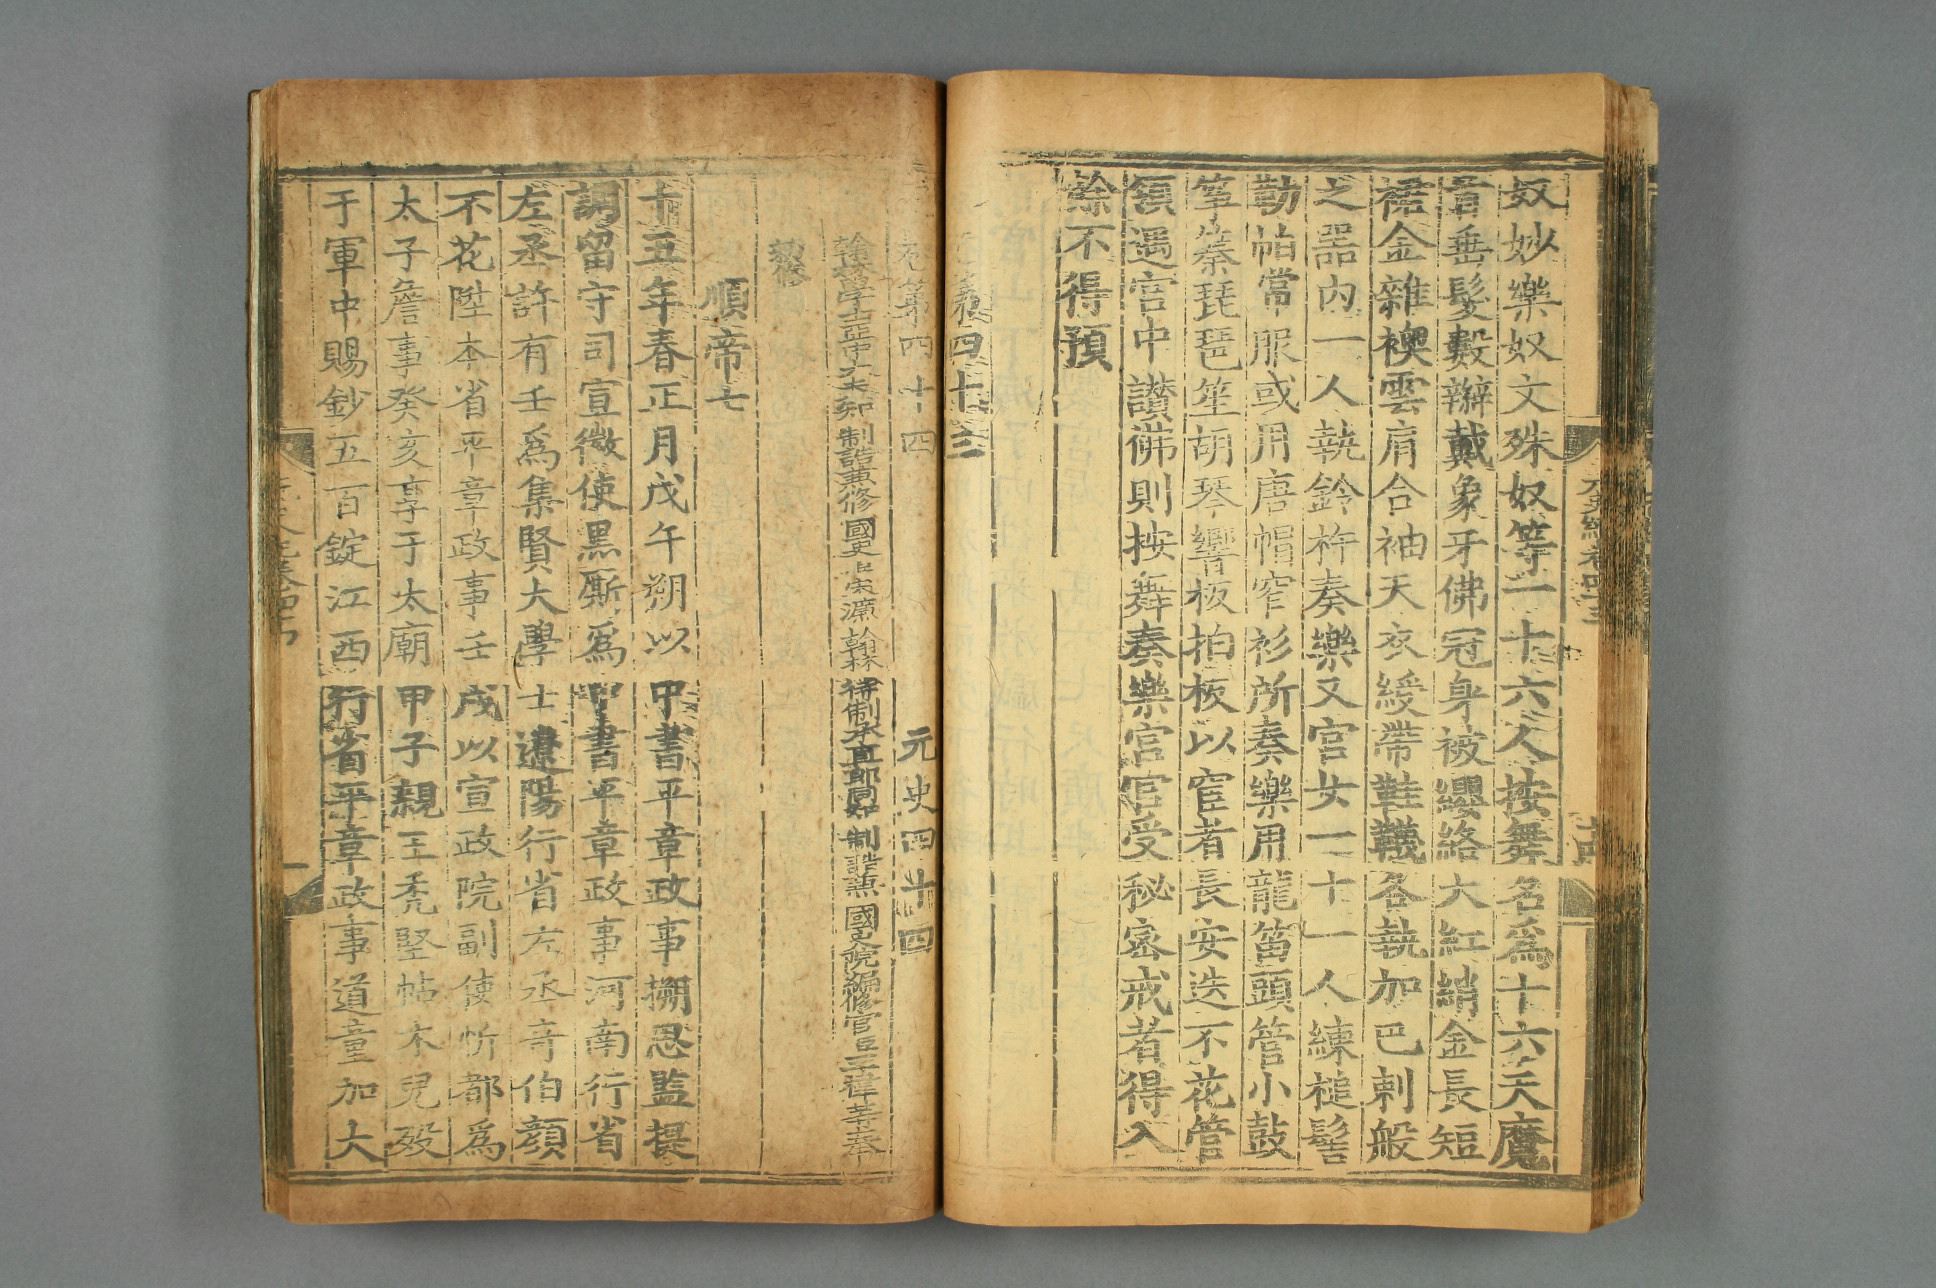 奴妙樂奴文殊奴等一十六人按舞名爲十六天魔
首垂髮數辮戴象牙佛冠身被纓絡大紅綃金長短
裙金雜襖雲肩合袖天衣綬帶鞋韈各執加巴剌般
之器內一人執鈴杵奏樂又宮女一十一人練槌髻
勒帕常服或用唐帽窄衫所奏樂用龍笛頭管小鼓
箏𥱧琵琶笙胡琴響板拍板以宦者長安迭不花管
領遇宮中讃佛則按舞奏樂宮官受秘密戒者得入
餘不得預
四十三
卷第四十四 元史四十四
翰林學士亞中大夫知制誥兼修國史臣宋濂翰林待制承直郎同知制誥兼國史院編修官臣王禕等奉
勑修
順帝七
十五年春正月戊午朔以中書平章政事搠思監提
調留守司宣徽使黑厮爲中書平章政事河南行省
左丞許有壬爲集賢大學士遼陽行省左丞奇伯顔
不花陞本省平章政事壬戌以宣政院副使忻都爲
太子詹事癸亥享于太廟甲子親王禿堅帖木兒歿
于軍中賜鈔五百錠江西行省平章政事道童加大